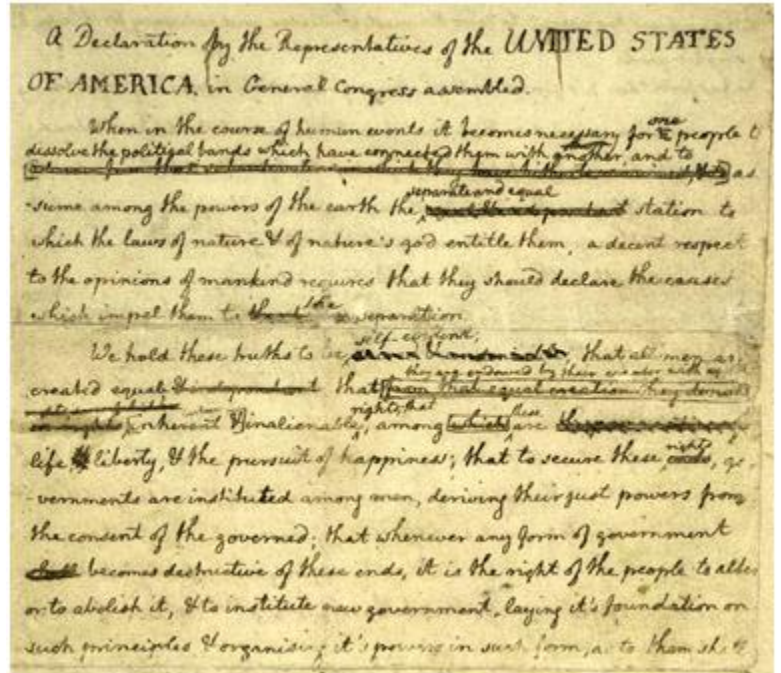 A Declaration by the Representatives of the UNITED STATES
OF AMERICA, in General Congress assembled.
one
When in the course of human events it becomes necessary for people t
dissolve the political bands which have connected them with another, and to
as
separate and equal
-sume among the powers of the earth the station to
which the laws of nature & of nature's god entitle them, a decent respect
to the opinions of mankind requires that they should declare the causes
the
which impel them to separation.
self-evident;
We hold these truths to be that all men are
they are endowed by their creator with
created equal that from that equal creation they
rights; that
these
inherent & inalienable among which are
rights
life liberty, & the pursuit of happiness; that to secure these ends, go
-vernments are instituted among men, deriving their just powers from
the consent of the governed; that whenever any form of government
shall becomes destructive of these ends, it is the right of the people to alter
or to abolish it, & to institute new government, laying it's foundation on
such principles & organising it's powers in such form, as to them sh